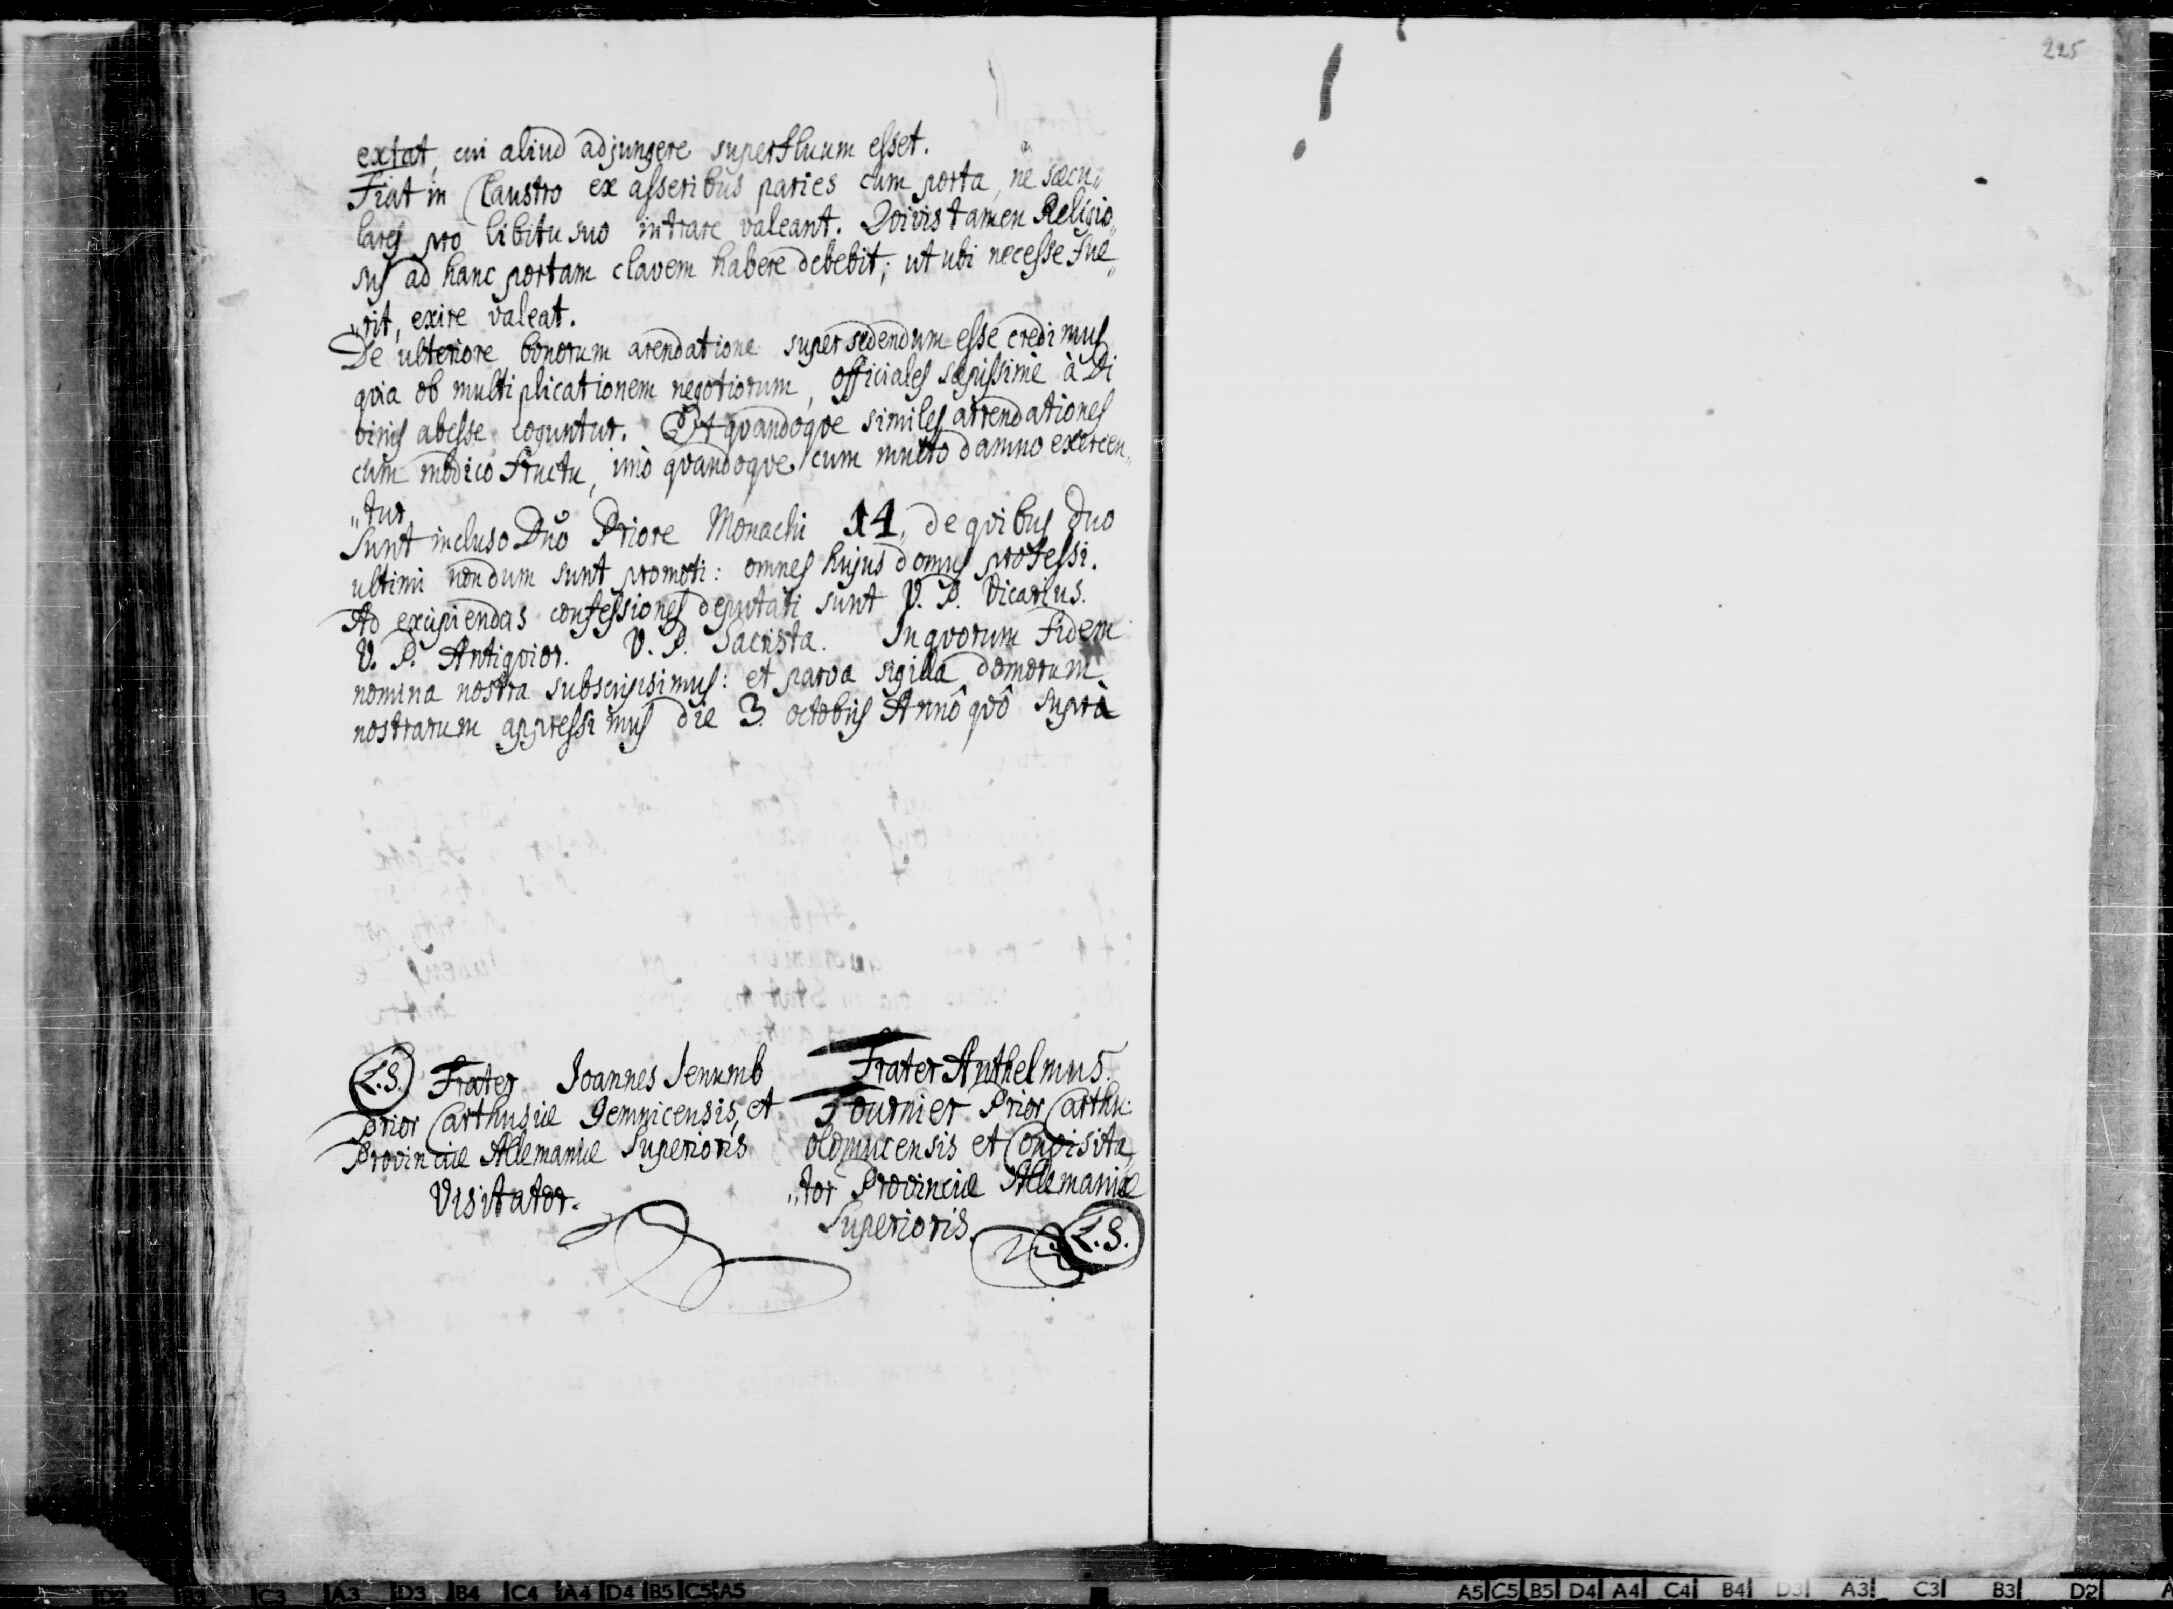 225
extat, cui aliud adjungere superfluum esset.
Fiat in Claustro ex asseribus paries cum porta, ne sæcu„
lares pro libitu suo intrare valeant. Qvivis tamen Religio„
sus ad hanc portam clavem habere debebit; ut ubi necesse fue„
„rit, exire valeat.
De ulteriore bonorum arendatione supersedendum esse credimus
qvia ob multiplicationem negotiorum, officiales sæpissimè à Di
vinis abesse coguntur. Et qvandoqve similes arrendationes
cum modico fructu, imò qvandoqve cum multo damno exercen„
„tur
Sunt incluso Dno Priore Monachi 14, de qvibus duo
ultimi nondum sunt promoti: omnes hujus domus professi.
Ad excipiendas confessiones deputati sunt V. P. Vicarius.
V. P. Antiqvior. V. P. Sacrista. In qvorum fidem
nomina nostra subscripsimus: et parva sigilla domorum
nostrarum appressimus die 3. octobris Annô qvô suprà
L.S. Frater Joannes
Prior Carthusiæ Gemnicensis, et
Provinciæ Allemaniæ Superioris
Visitator.
Frater Anthelmus
Fournier Prior Carthu:
olomucensis et Convisita„
„tor Provinciæ Allemaniæ
Superioris. L.S.